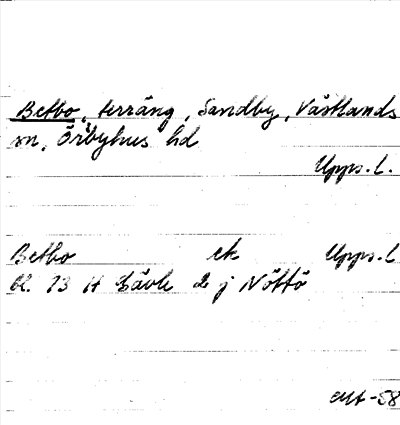 Betbo, terräng, Sandby, Västlands
sn, Örbyhus hd
Upps. l.
Betbo ek Upps. l
bl. 13 H Gävle 2 j Nöttö
-58